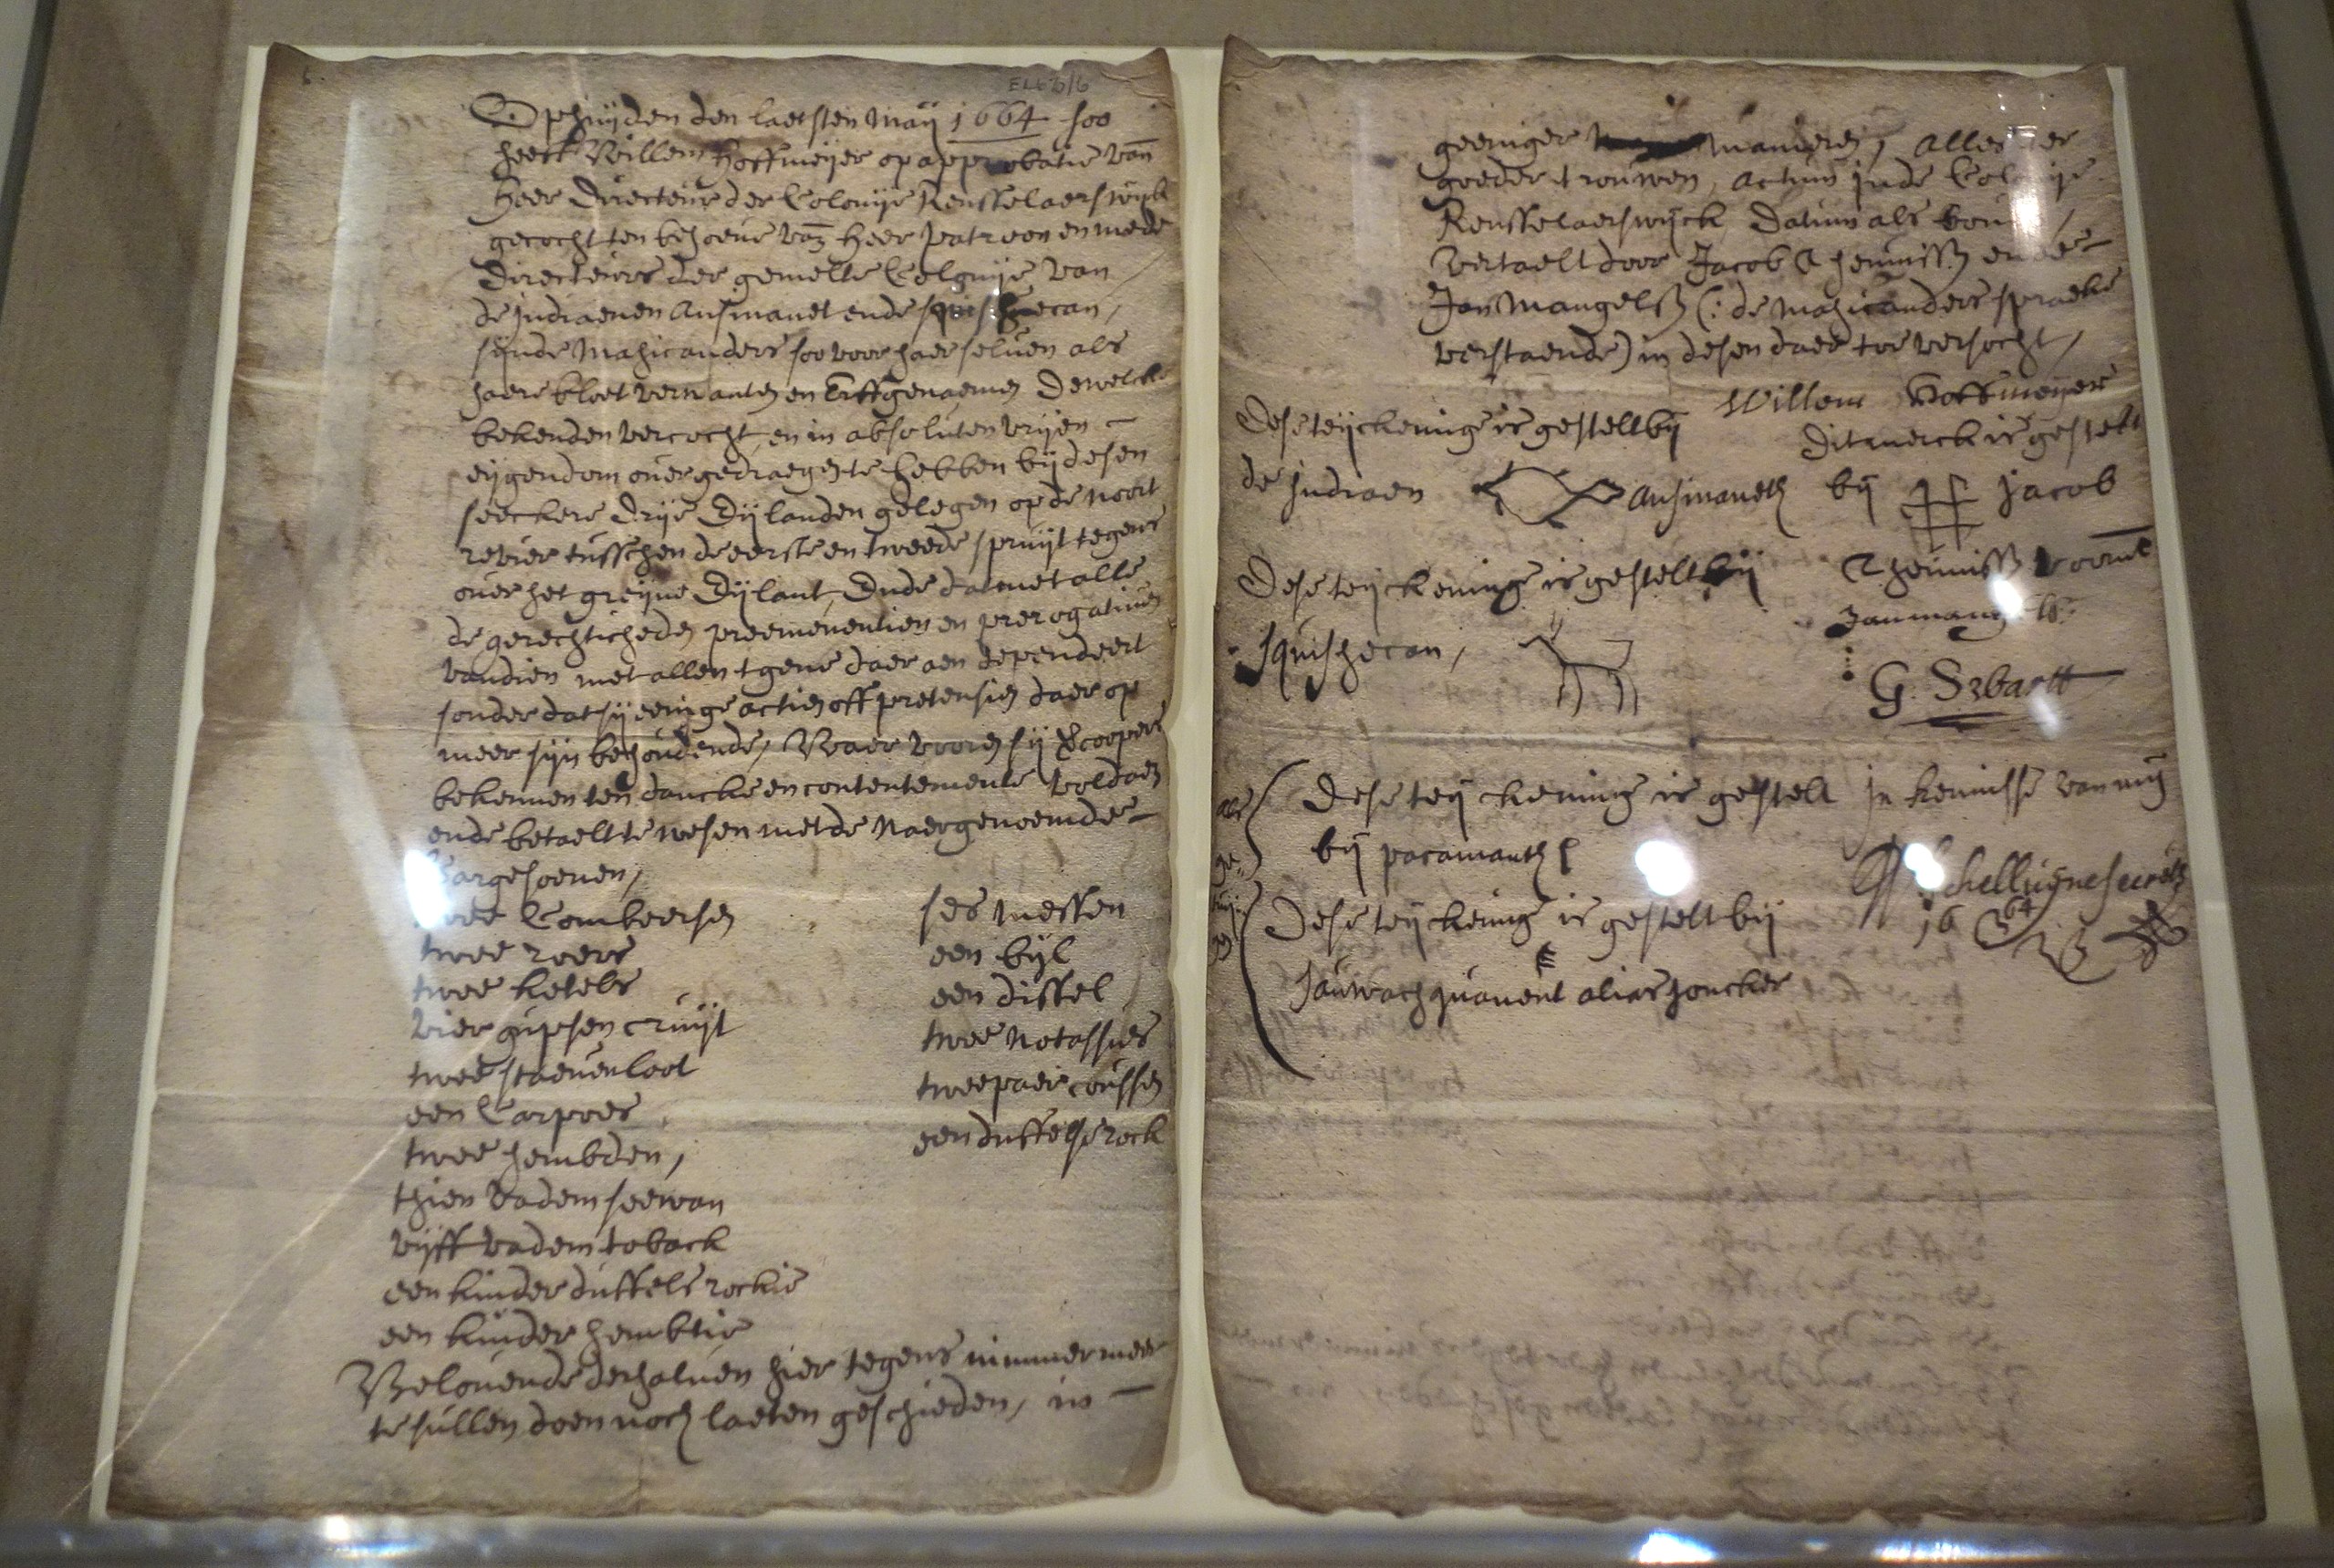 Op huijden den laetsten Maij 1664 soo
heeft Willem Hoffmeijer op approbatie van
heer Directeur der Colonije Rensselaerswijck
gecocht ten behoeve van heer patroon en mede
Directeurs der gemelte Colonije van
de Indiaenen Ansinanet ende squishecan,
sijnde Mahicanders soo voor haer selven als
haere bloet verwanten en Erffgenaemen Dewelcke
bekenden vercocht, en in absoluten vrijen
eijgendom over gedraegen te hebben bij desen
seeckere Drije Eijlanden gelegen op de Noort
revier tusschen de eerste en tweede spruijt tegens
over het greijne Eijlant, Ende dat met alle
de gerechticheden preeminentien en prerogativen
van dien met allen tgene daer aen dependeert
sonder dat sij eenige actien off pretensien daer op
meer sijn behoudende, Waer vooren sij vercoopers
bekennen ten dancke en contentemente voldaen
ende betaelt te wesen met de Naergenoemde
Cargesoenen,
twee Combeersen
twee roers
twee ketels
vier gupsen cruijt
twee staeven loot
een Carpoes
twee hembden,
thien vadem seewan
vijff vadem toback
een kinder duffels rockie
een kinder hembtie
ses messen
een bijl
een dissel
twee Notassies
twee paer coussen
een duffelse rock
Belovende derhalven hier tegens nimmermeer
te sullen doen noch laeten geschieden, in
E2676/6
geeniger manieren, Alles ter
goeder trouwen, Actum in de Colonije
Rensselaerswijck Datum als boven
vertaelt door Jacob Theunissen ende
Jan Mangelsen (: de Mahicanders spraeke
verstaende) in desen daer toe versocht,
Willem Hoffmeijer
Dese teijckeninge is gestelt bij
de Indiaen Ansinaneth
Dit merck is gestelt
bij Jacob
Theunissen voornt
Dese teijckeninge is gestelt bij
squishecan,
Jan mangels
Dese teijckening is gestelt
bij pacamanth
Dese teijckening is gestelt bij
sauwachquanent alias joncker
In kennisse van mij
Schelluijne secretaris
1664